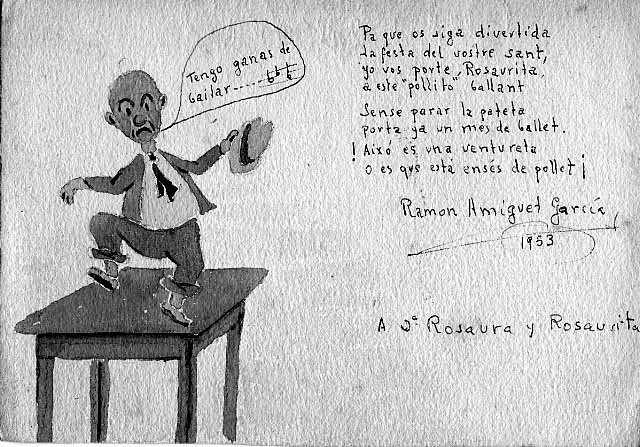 Tengo ganas de
bailar------
Pa que os siga divertida
la festa del vostre sant,
yo vos porte, Rosaurita,
a este "pollito" ballant
Sense parar la pateta
porta ya un mes de ballet.
¡Aixó es una ventureta
O es que está ensés de pollet!
Ramon Amiguet García
1953
A Dª Rosaura y Rosaurita